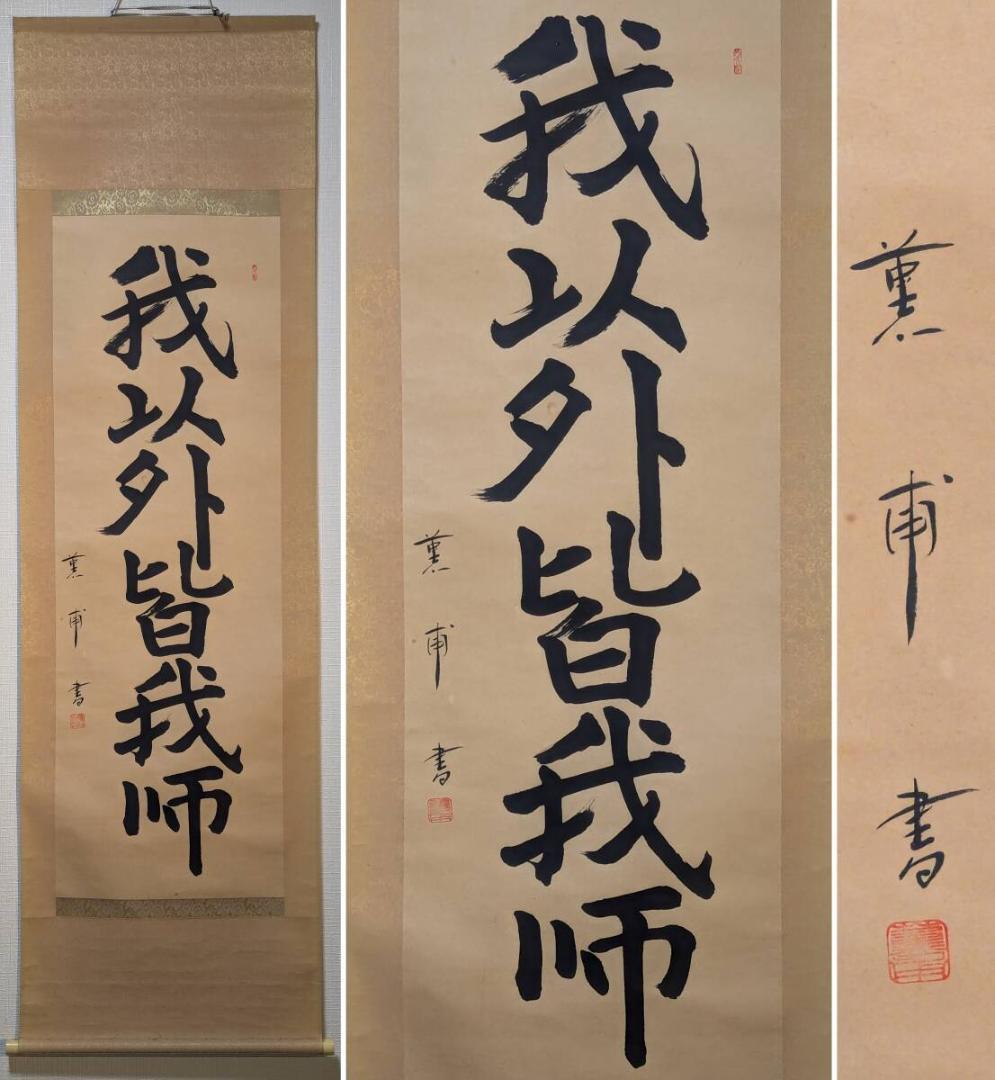 我以外皆我师
薫甫書
我以外皆我师
薫甫書
薫甫書